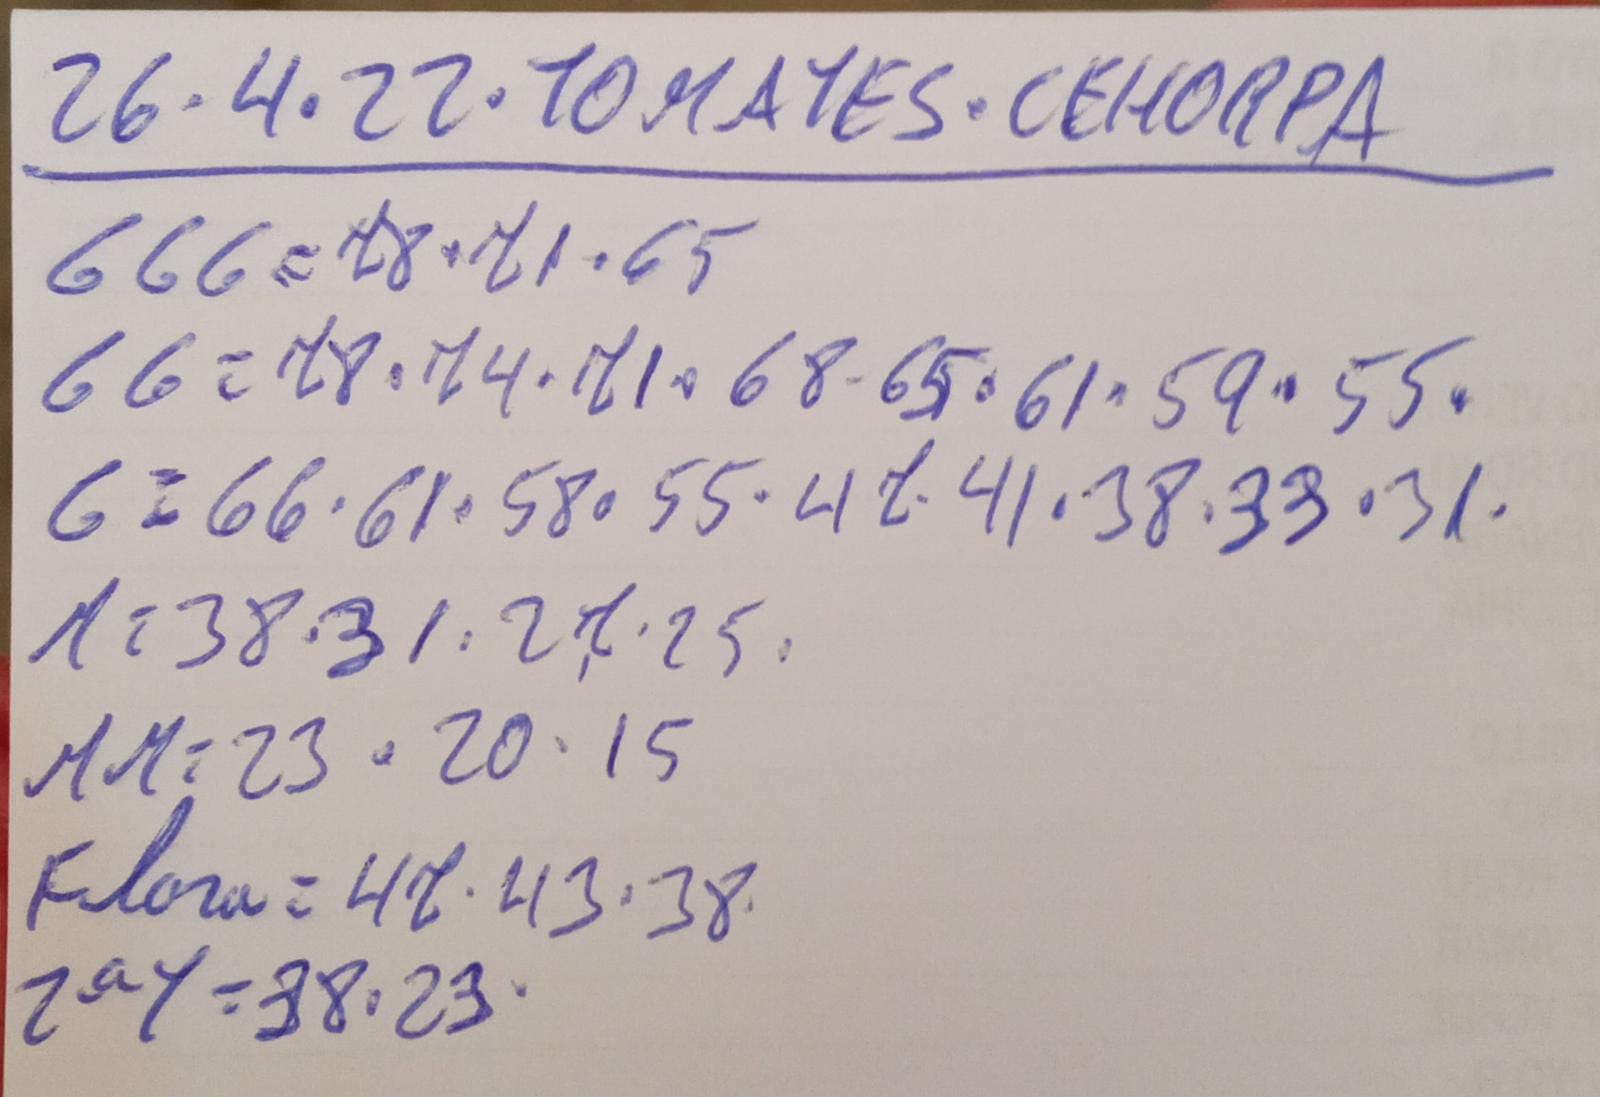 26.4.22.TOMATES.CEHORPA
GGG=78.71.65
GG=78.74.71.68-65.61.59.55.
G=66.61.58.55.47.41.38.33.31.
M=38.31.27.25.
MM=23.20.15
Flora=47.43.38.
2ªY=38.23.